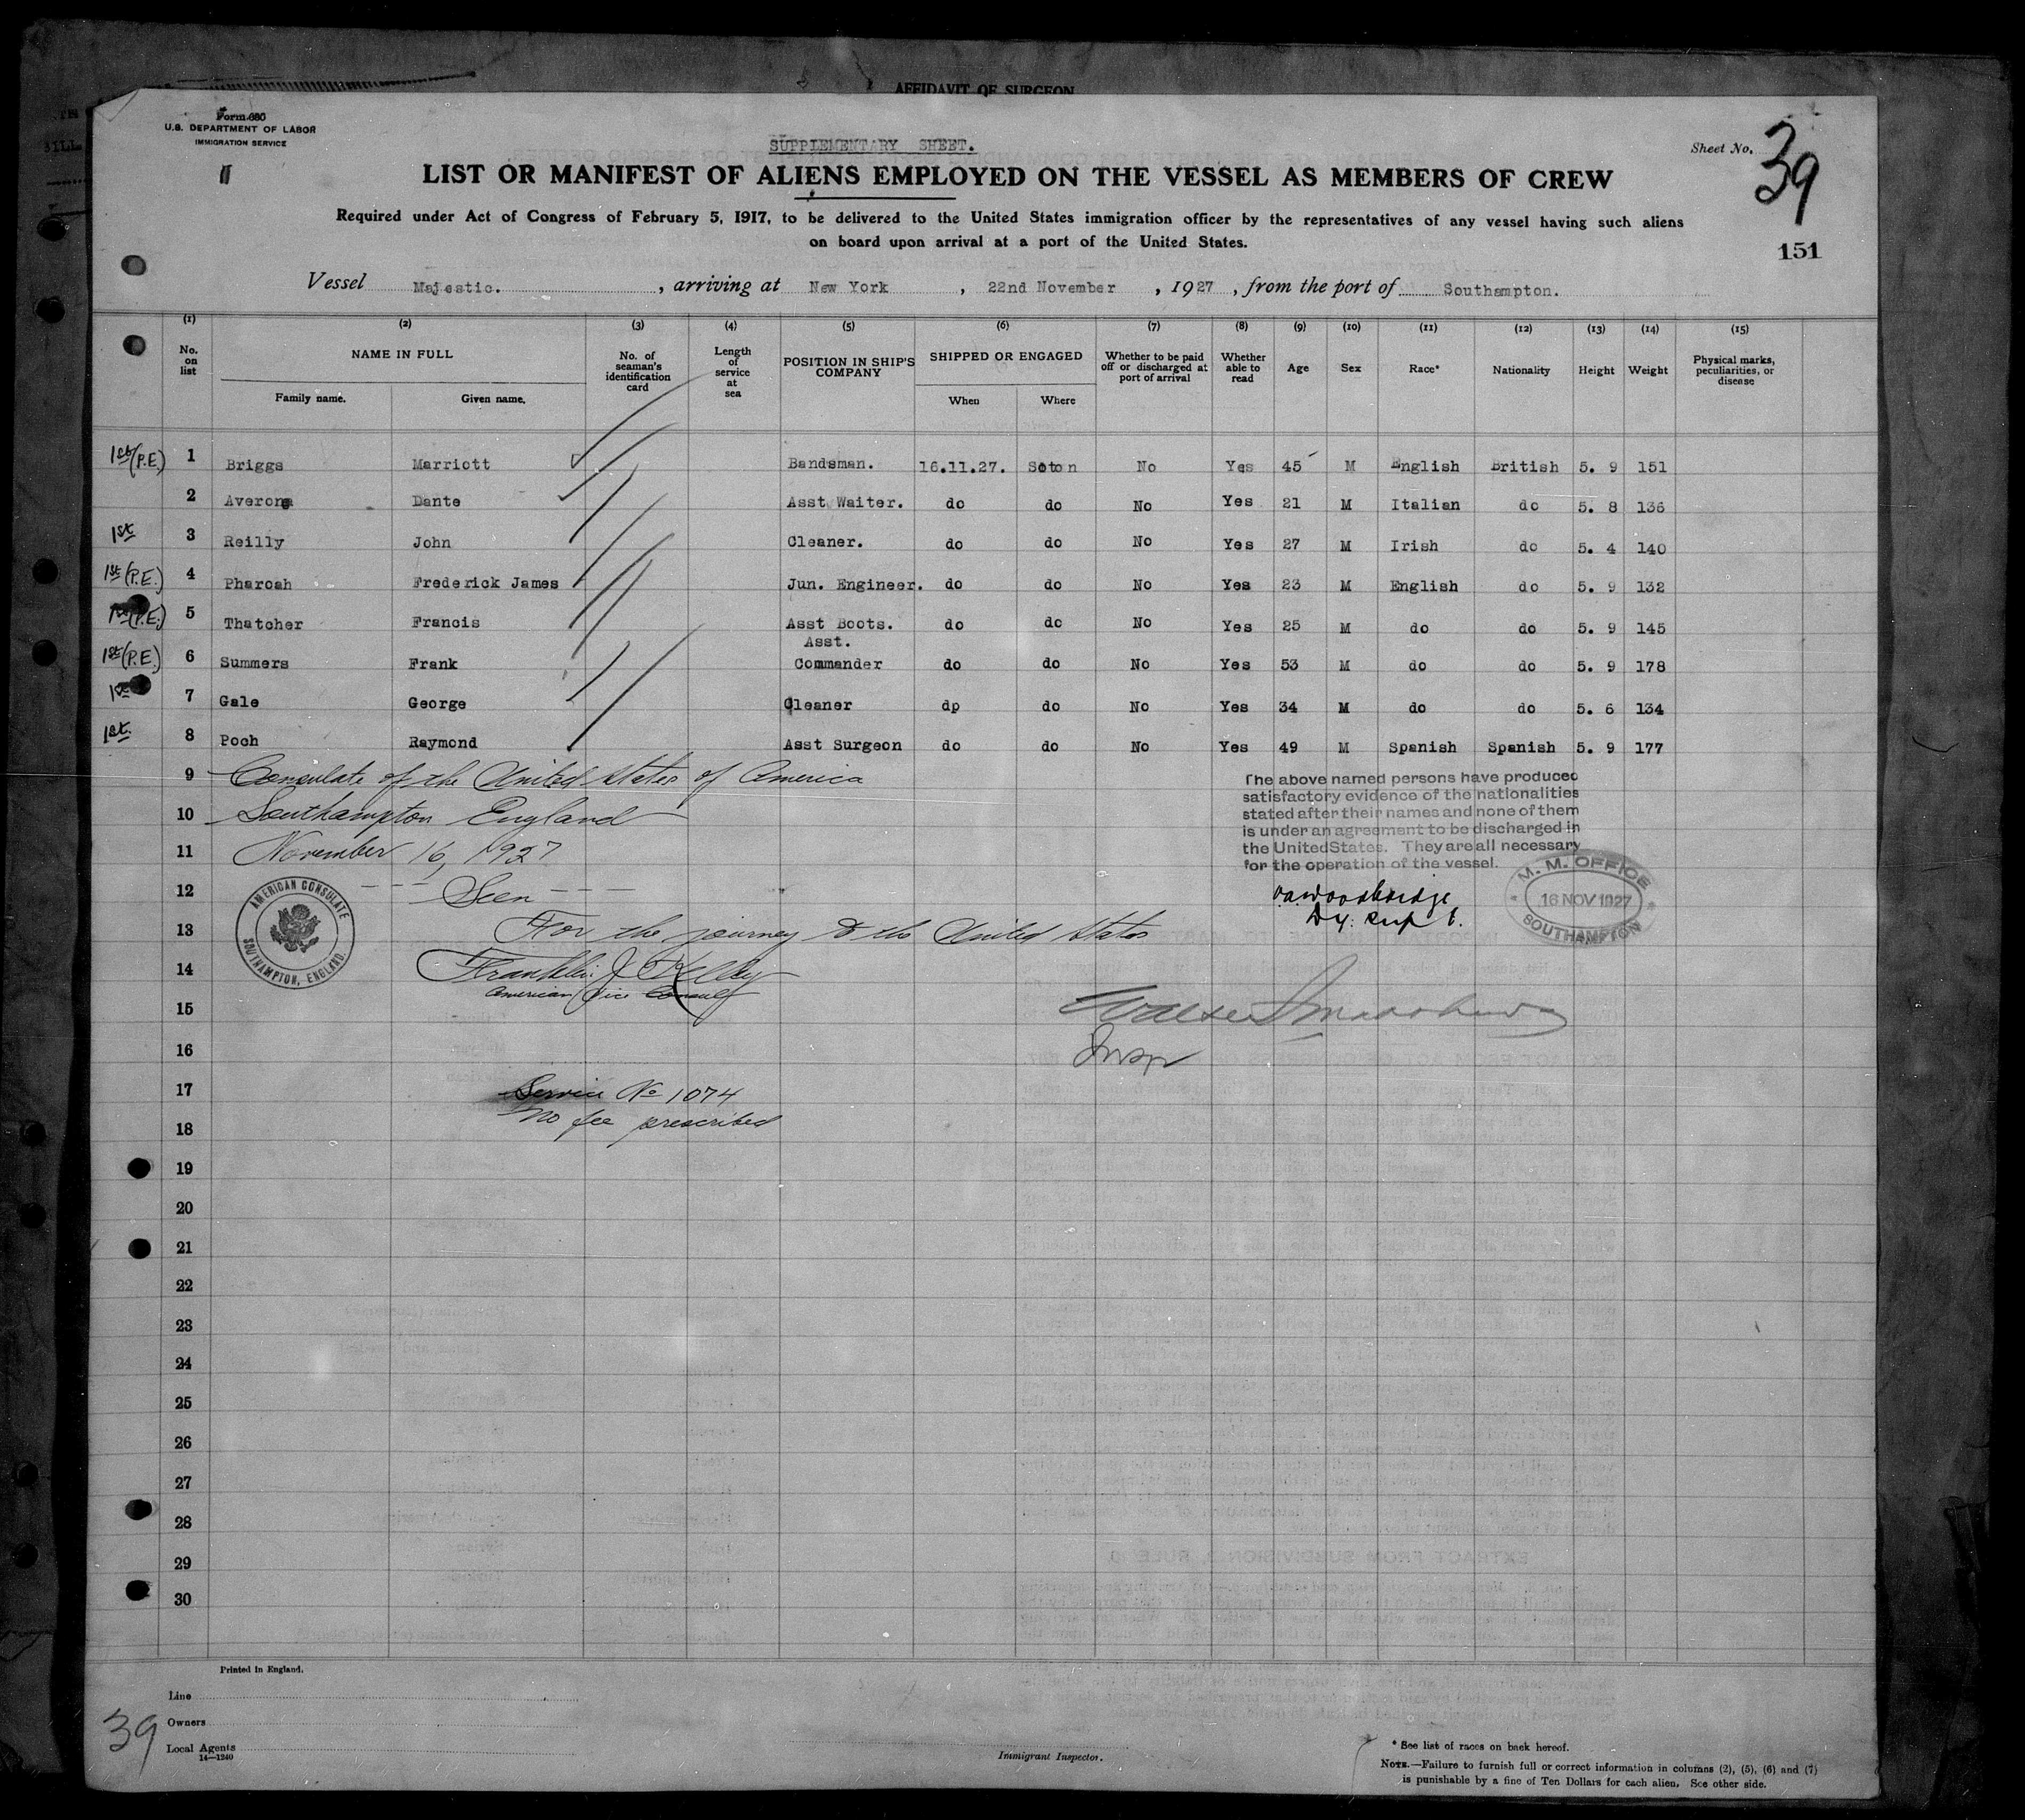 AFFIDAVIT OF SURGEON
Form 680
U.S. DEPARTMENT OF LABOR
IMMIGRATION SERVICE
SUPPLEMENTARY SHEET.
Sheet No. 39
LIST OR MANIFEST OF ALIENS EMPLOYED ON THE VESSEL AS MEMBERS OF CREW
Required under Act of Congress of February 5, 1917, to be delivered to the United States immigration officer by the representatives of any vessel having such aliens
on board upon arrival at a port of the United States.
151
Vessel Majestic. , arriving at New York , 22nd November , 1927 , from the port of Southampton.
(1) (2) (3) (4) (5) (6) (7) (8) (9) (10) (11) (12) (13) (14) (15)
No. on list NAME IN FULL No. of seaman's identification card Length of service at sea POSITION IN SHIP'S COMPANY SHIPPED OR ENGAGED Whether to be paid off or discharged at port of arrival Whether able to read Age Sex Race* Nationality Height Weight Physical marks, peculiarities, or disease
Family name. Given name. When Where
1st (P.E.) 1 Briggs Marriott Bandsman. 16.11.27. Soton No Yes 45 M English British 5. 9 151
2 Averona Dante Asst Waiter. do do No Yes 21 M Italian do 5. 8 136
1st 3 Reilly John Cleaner. do do No Yes 27 M Irish do 5. 4 140
1st (P.E.) 4 Pharoah Frederick James Jun. Engineer. do do No Yes 23 M English do 5. 9 132
1st (P.E.) 5 Thatcher Francis Asst Boots. do do No Yes 25 M do do 5. 9 145
Asst.
1st (P.E.) 6 Summers Frank Commander do do No Yes 53 M do do 5. 9 178
1st 7 Gale George Cleaner dp do No Yes 34 M do do 5. 6 134
1st. 8 Poch Raymond Asst Surgeon do do No Yes 49 M Spanish Spanish 5. 9 177
9 Consulate of the United States of America
10 Southampton England
11 November 16, 1927
12 - - - Seen - - -
13 For the journey to the United States
14 Franklin J. Kelly
American Vice Consul
15
16
17 Service No 1074
18 No fee prescribed
AMERICAN CONSULATE
SOUTHAMPTON, ENGLAND.
The above named persons have produced
satisfactory evidence of the nationalities
stated after their names and none of them
is under an agreement to be discharged in
the United States. They are all necessary
for the operation of the vessel.
Dy. Supt.
M. M. OFFICE
16 NOV 1927
SOUTHAMPTON
Insp
19
20
21
22
23
24
25
26
27
28
29
30
Printed in England.
Line
Owners
Local Agents
14—1240
39
Immigrant Inspector.
* See list of races on back hereof.
NOTE.—Failure to furnish full or correct information in columns (2), (5), (6) and (7)
is punishable by a fine of Ten Dollars for each alien. See other side.